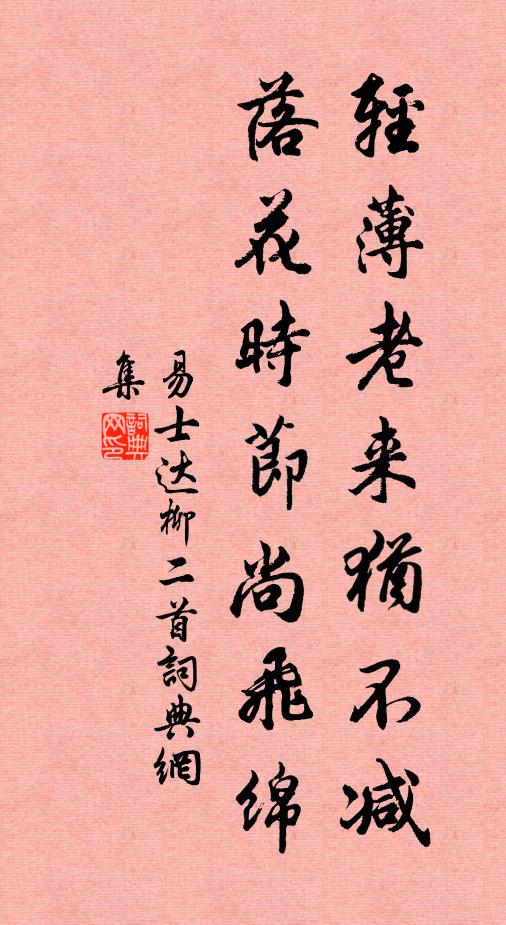 輕薄老来猶不减
落花時節尚飛綿
易士达柳二首詞典網
集
詞典
网印